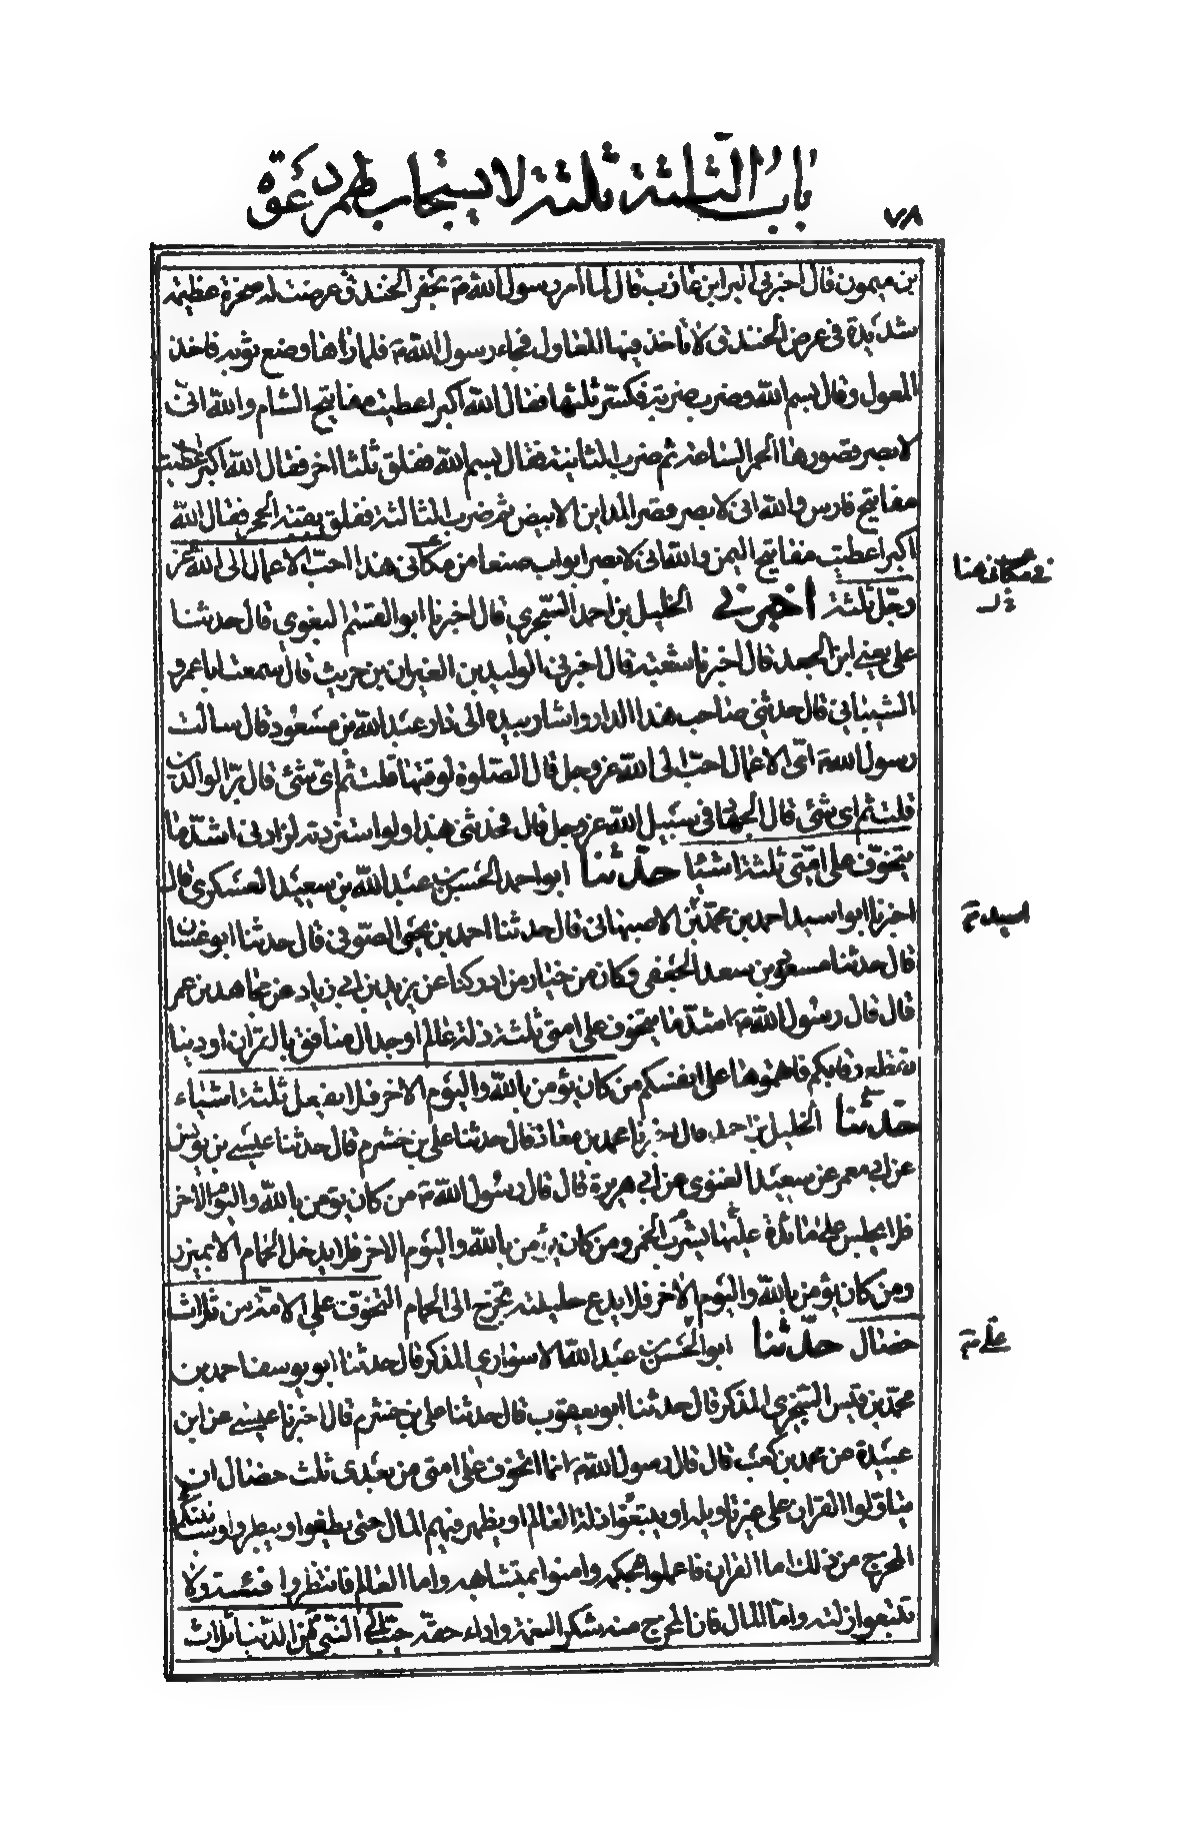 باب الثلثة ثلثة لا يستجاب لهم دعوة
٧٨
بن ميمون قال اخبرني البراء بن عازب قال لما امر رسول الله ص بحفر الخندق عرضت له صخرة عظيمة
شديدة في عرض الخندق لا تاخذ فيها المعاول فجاء رسول الله ص فلما راها وضع ثوبه فاخذ
المعول وقال بسم الله وضرب ضربة فكسر ثلثها فقال الله اكبر اعطيت مفاتيح الشام والله انى
لابصر قصورها الحمر الساعة ثم ضرب الثانية فقال بسم الله ففلق ثلثا اخر فقال الله اكبر اعطيت
مفاتيح فارس والله انى لابصر قصر المداين الابيض ثم ضرب الثالثة ففلق بقية الحجر فقال الله
اكبر اعطيت مفاتيح اليمن والله انى لابصر ابواب صنعا من مكانى هذا احب الاعمال الى الله عز
في مكاني هنا
وجل ثلثة اخبرني الخليل بن احمد السجزي قال اخبرنا ابو القسم البغوي قال حدثنا
على يعني ابن الجعد قال اخبرنا شعبة قال اخبرنى الوليد بن العيزان بن حريث قال سمعت ابا عمرو
الشيبانى قال حدثنى صاحب هذا الدار واشار بيده الى دار عبد الله بن مسعود قال سالت
رسول الله ص اى الاعمال احب الى الله عز وجل قال الصلوة لوقتها قلت ثم اى شئ قال بر الوالدين
قلت ثم اى شئ قال الجهاد فى سبيل الله عز وجل قال فحدثنى بهذا ولو استزدته لزادنى اشد ما
يتخوف على امتى ثلثة اشيا حدثنا ابو احمد الحسن بن عبد الله بن سعيد العسكرى قال
اخبرنا ابو اسيد احمد بن محمد بن الاصبهانى قال حدثنا احمد بن يحيى الصوفى قال حدثنا ابو غسان
اسيد
قال حدثنا مسعود بن سعد الجعفى وكان من خيار من ادركنا عن يزيد بن ابى زياد عن مجاهد بن عمر
قال قال رسول الله ص اشد ما يتخوف على امتى ثلثة زلة عالم او جدال منافق بالقران او دنيا
تقطع رقابكم فاتهموها على انفسكم من كان يؤمن بالله واليوم الاخر فلا يفعل ثلثة اشياء
حدثنا الخليل بن احمد قال اخبرنا محمد بن معاذ قال حدثنا على بن خشرم قال حدثنا عيسى بن يونس
عن ابى معمر عن سعيد الغنوى عن ابى هريرة قال قال رسول الله ص من كان يؤمن بالله واليوم الاخر
فلا يجلس على مائدة عليها يشرب الخمر ومن كان يؤمن بالله واليوم الاخر فلا يدخل الحمام الا بميزر
ومن كان يؤمن بالله واليوم الاخر فلا يدع حليلته تخرج الى الحمام التخوف على الامة من ثلاث
خصال حدثنا ابو الحسن بن عبد الله الاسوارى المذكر قال حدثنا ابو يوسف احمد بن
محمد بن قيس السجزى المذكر قال حدثنا ابو يعقوب قال حدثنا على بن خشرم قال اخبرنا عيسى عن ابن
عبيدة عن محمد بن كعب قال قال رسول الله ص انما اتخوف على امتى من بعدى ثلث خصال ان
يتاولوا القران على غير تاويله او يبتغوا زلة العالم او يظهر فيهم المال حتى يطغوا ويبطروا وسانبئكم
المخرج من ذلك اما القران فاعملوا بمحكمه وامنوا بمتشابهه واما العالم فانتظروا فيئته ولا
تتبعوا زلته واما المال فان المخرج منه شكر النعمة واداء حقه حبب الى النبى من الدنيا ثلاث